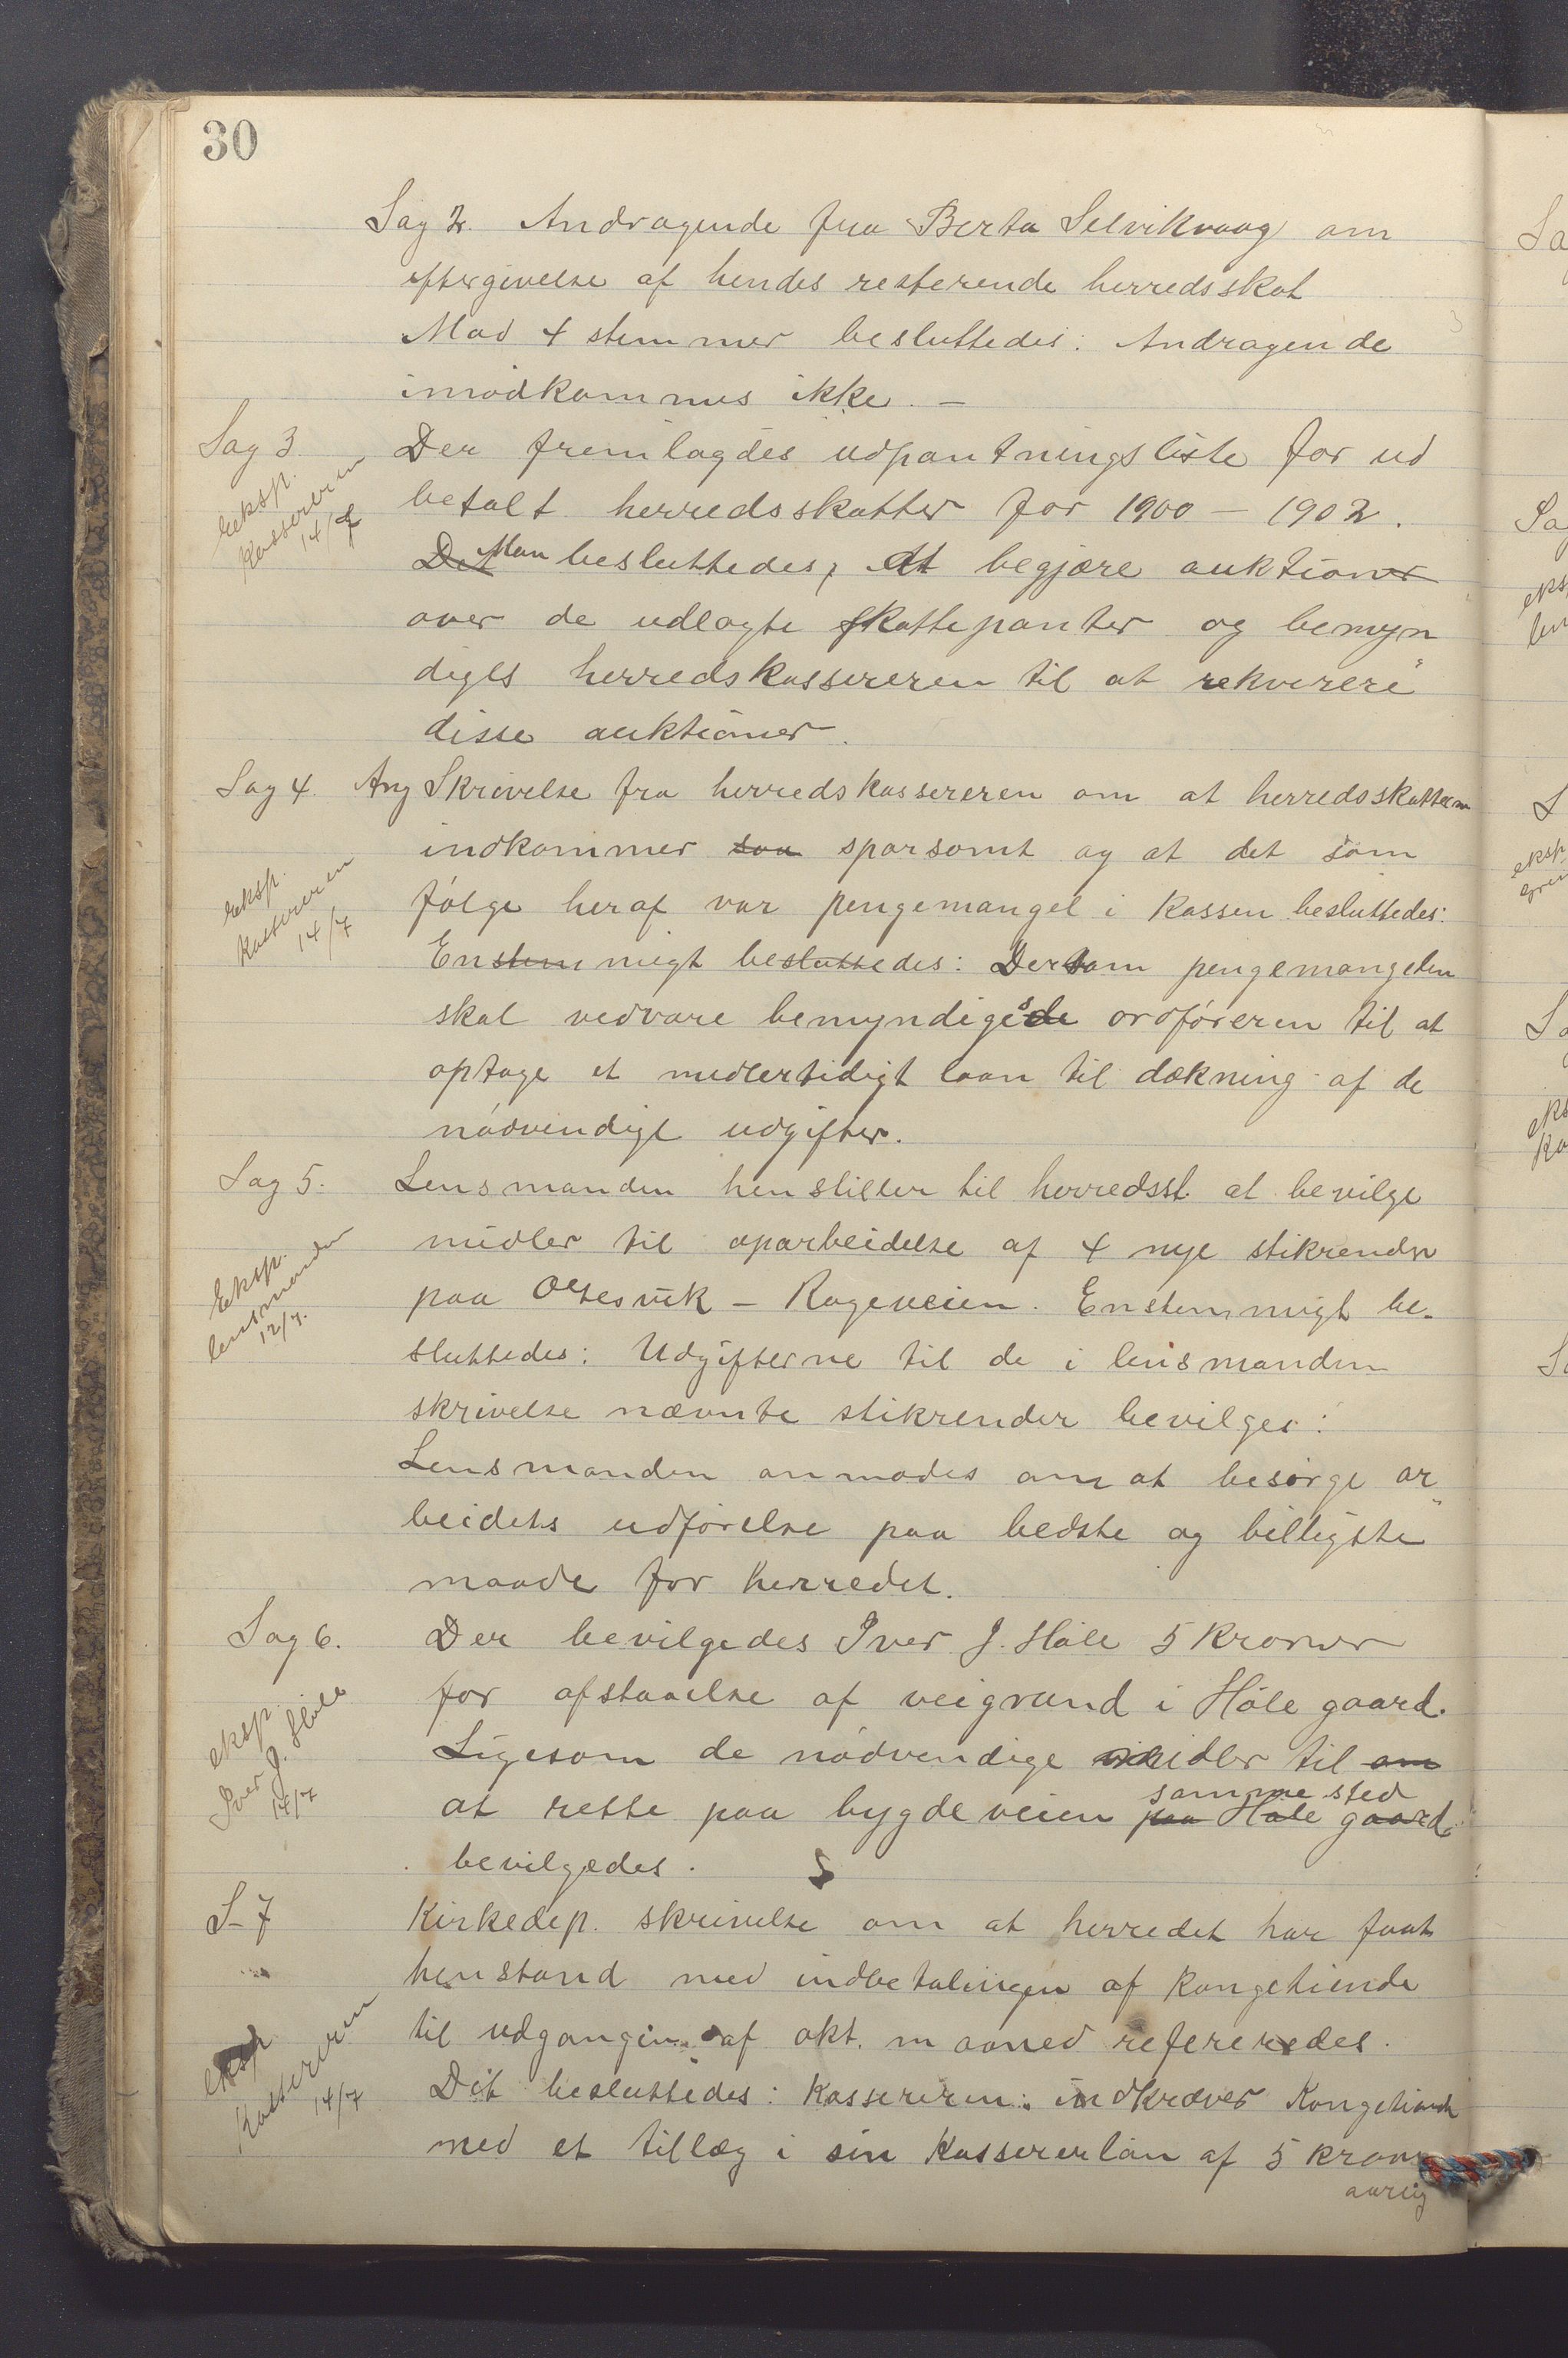 30
Sag 2. Andragende fra Berta Selvikvaag om
eftergivelse af hendes resterende herredsskat
Mod 4 stemmer besluttedes: Andragende
imødkommes ikke. —
Sag 3. Der fremlagdes udpantningsliste for ud
eksp. kassereren 14/7
betalt herredsskatter for 1900 – 1902.
Det Man besluttedes, At begjære auktioner
over de udlagte skattepanter og bemyn
diges herredskassereren til at rekvirere
disse auktioner.
Sag 4. Ang Skrivelse fra herredskassereren om at herredsskatten
indkommer saa sparsomt og at det som
eksp. kassereren 14/7
følge heraf var pengemangel i kassen besluttedes:
Enstemmigt besluttedes: Dersom pengemangelen
skal vedvare bemyndigesde ordføreren til at
optage et midlertidigt laan til dækning af de
nødvendige udgifter.
Sag 5. Lensmanden henstiller til herredsst. at bevilge
midler til oparbeidelse af 4 nye stikrender
Eksp. lensmanden 12/7.
paa Oltesvik – Rageveien. Enstemmigt be-
sluttedes: Udgifterne til de i lensmanden
skrivelse nævnte stikrender bevilges:
Lensmanden anmodes om at besørge ar
beidets udførelse paa bedste og billigste
maade for herredet.
Sag 6. Der bevilgedes Iver J. Høle 5 kroner
for afstaaelse af veigrund i Høle gaard.
eksp. Iver J. Høle 14/7
Ligesom de nødvendige midler til om
samme sted
at rette paa bygdeveien paa Høle gaard.
bevilgedes.
S- 7 Kirkedep. skrivelse om at herredet har faat
henstand med indbetalingen af kongetiende
til udgangen af okt. maaned refereredes.
eksp kassereren 14/7
Det besluttedes: Kassereren indkræver Kongetiende
med et tillæg i sin kassererløn af 5 kroner
aarlig
Sa
Sa
eks
len
S
eksp
S
eks
ka
Sa